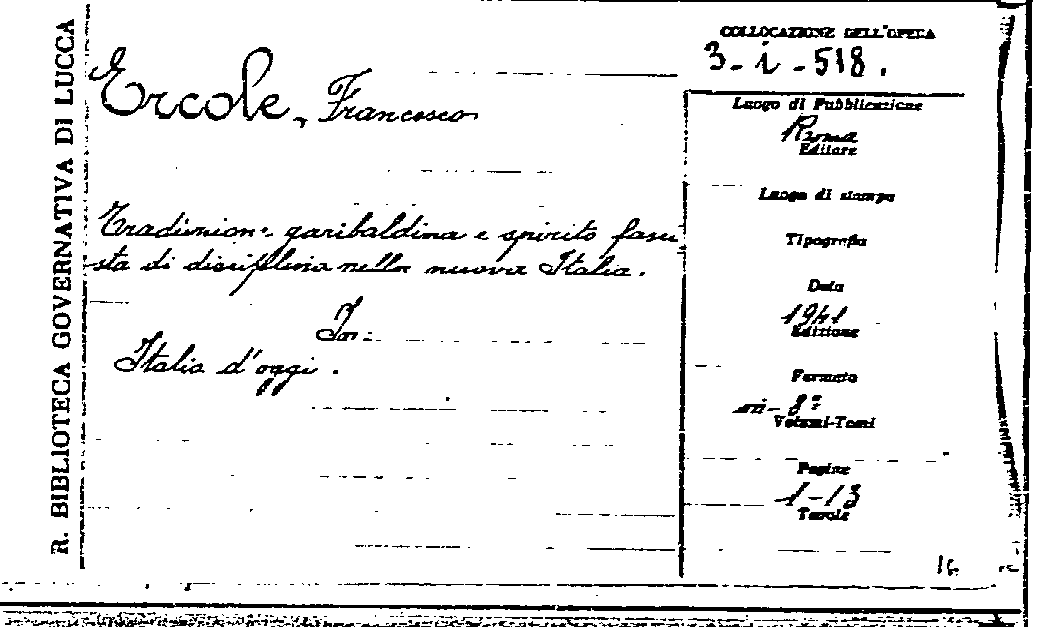 R. BIBLIOTECA GOVERNATIVA DI LUCCA
COLLOCAZIONE DELL'OPERA
3-i-518.
Ercole, Francesco
Luogo di Pubblicazione
Roma
Editore
Luogo di stampa
Tradizione garibaldina e spirito fasci
sta di disciplina nella nuova Italia.
Tipografia
Data
In:
1941
Edizione
Italia d'oggi.
Formato
in-8º
Volumi-Tomi
Pagine
1-13
Tavole